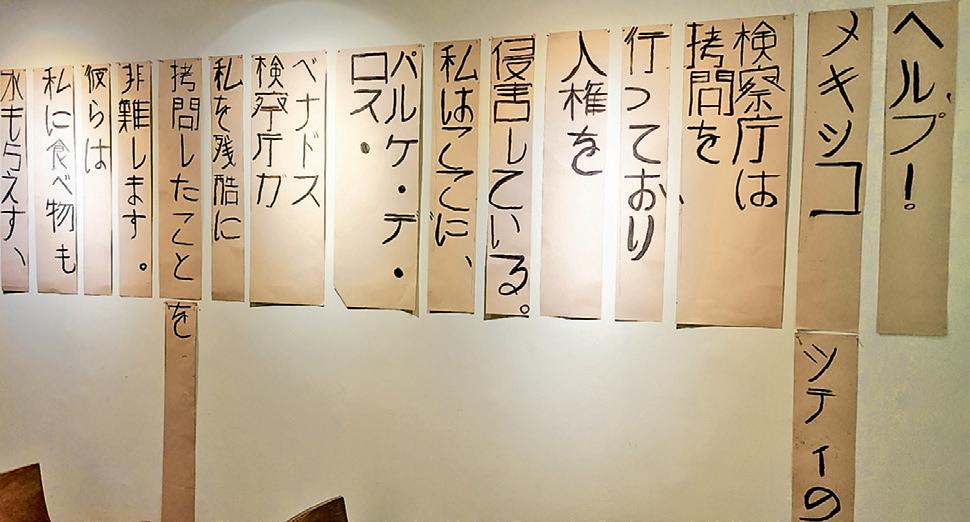 ヘルプ!
メキシコ
シティの
検察庁は
拷問を
行っており
人権を
侵害している。
私はここに、
パルケ・デ・
ロス・
ベナドス
検察庁が
私を残酷に
拷問したこと
を
非難します。
彼らは
私に食べ物も
水も与えず、